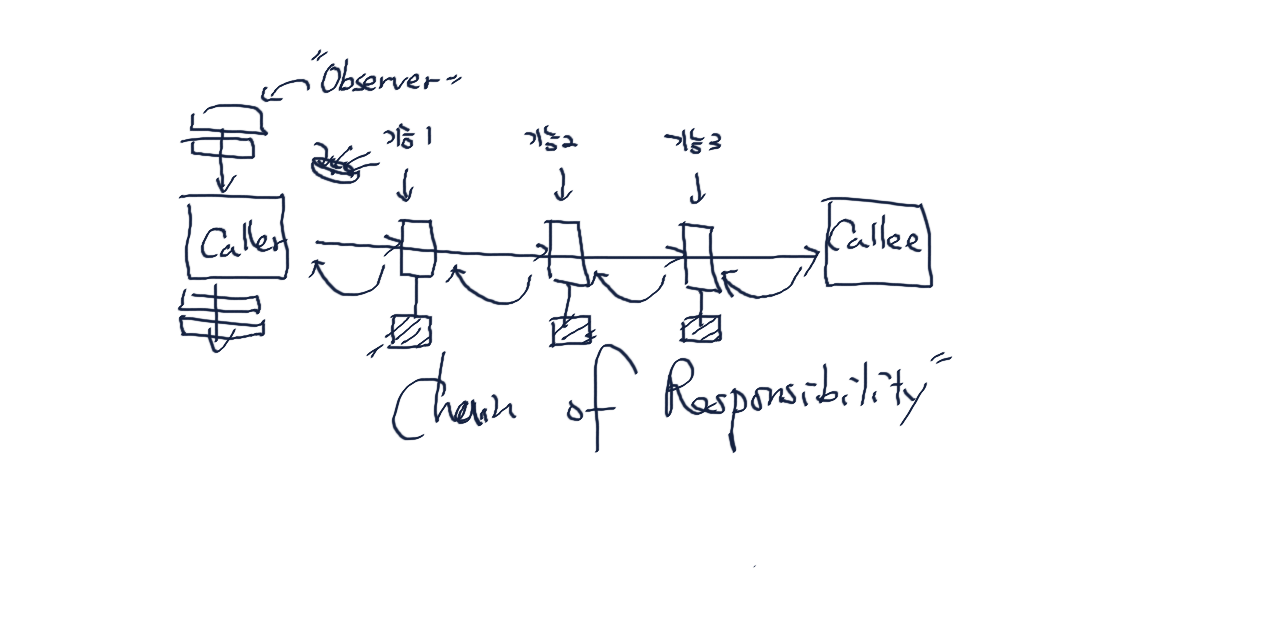 "Observer"
기능1
기능2
기능3
Caller
Callee
Chain of Responsibility"